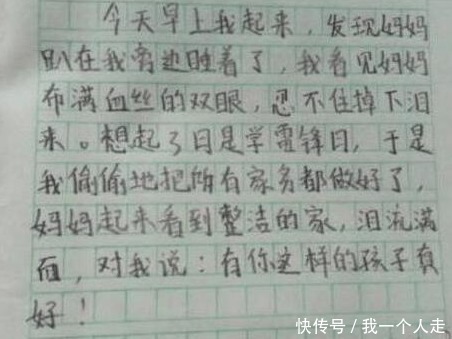 今天早上我起来，发现妈妈
趴在我旁边睡着了，我看见妈妈
布满血丝的双眼，忍不住掉下泪
来。想起了日是学雷锋日，于是
我偷偷地把所有家务都做好了，
妈妈起来看到整洁的家，泪流满
面，对我说：有你这样的孩子真
好！
快传号／我一个人走